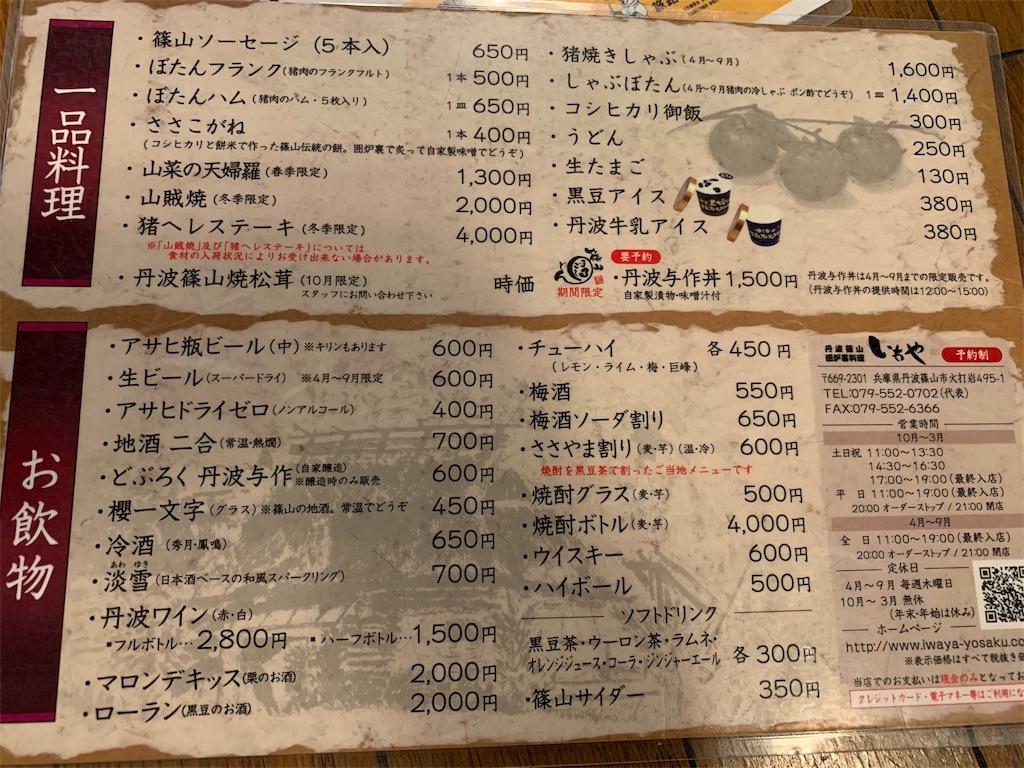 一品料理
・篠山ソーセージ（5本入） 650円
・ぼたんフランク(猪肉のフランクフルト) 1本 500円
・ぼたんハム（猪肉のハム・5枚入り） 1皿 650円
・ささこがね 1本 400円
(コシヒカリと餅米で作った篠山伝統の餅。囲炉裏で炙って自家製味噌でどうぞ)
・山菜の天婦羅（春季限定） 1,300円
・山賊焼（冬季限定） 2,000円
・猪ヘレステーキ（冬季限定） 4,000円
※「山賊焼」及び「猪ヘレステーキ」については
食材の入荷状況によりお受け出来ない場合があります。
・丹波篠山焼松茸（10月限定） 時価
スタッフにお問い合わせ下さい
・猪焼きしゃぶ（4月〜9月） 1,600円
・しゃぶぼたん(4月〜9月猪肉の冷しゃぶ ポン酢でどうぞ) 1皿 1,400円
・コシヒカリ御飯 300円
・うどん 250円
・生たまご 130円
・黒豆アイス 380円
・丹波牛乳アイス 380円
期間限定
要予約
・丹波与作丼 1,500円
自家製漬物・味噌汁付
丹波与作丼は4月〜9月までの限定販売です。
(丹波与作丼の提供時間は12:00〜15:00)
お飲物
・アサヒ瓶ビール（中）※キリンもあります 600円
・生ビール(スーパードライ) ※4月〜9月限定 600円
・アサヒドライゼロ(ノンアルコール) 400円
・地酒 二合（常温・熱燗） 700円
・どぶろく 丹波与作(自家醸造) ※醸造時のみ販売 600円
・櫻一文字（グラス）※篠山の地酒。常温でどうぞ 450円
・冷酒（秀月・鳳鳴） 650円
あわ ゆき
・淡雪(日本酒ベースの和風スパークリング) 700円
・丹波ワイン(赤・白)
▪フルボトル…2,800円 ▪ハーフボトル…1,500円
・マロンデキッス(栗のお酒) 2,000円
・ローラン(黒豆のお酒) 2,000円
・チューハイ 各450円
（レモン・ライム・梅・巨峰）
・梅酒 550円
・梅酒ソーダ割り 650円
・ささやま割り（麦・芋）（温・冷） 600円
焼酎を黒豆茶で割ったご当地メニューです
・焼酎グラス（麦・芋） 500円
・焼酎ボトル（麦・芋） 4,000円
・ウイスキー 600円
・ハイボール 500円
ソフトドリンク
黒豆茶・ウーロン茶・ラムネ・
オレンジジュース・コーラ・ジンジャーエール 各300円
・篠山サイダー 350円
丹波篠山
囲炉裏料理 いわや 予約制
〒669-2301 兵庫県丹波篠山市火打岩495-1
TEL:079-552-0702(代表)
FAX:079-552-6366
営業時間
10月〜3月
土日祝 11:00〜13:30
14:30〜16:30
17:00〜19:00(最終入店)
平 日 11:00〜19:00(最終入店)
20:00 オーダーストップ / 21:00 閉店
4月〜9月
全 日 11:00〜19:00(最終入店)
20:00 オーダーストップ / 21:00 閉店
定休日
4月〜9月 毎週木曜日
10月〜3月 無休
(年末・年始は休み)
ホームページ
http://www.iwaya-yosaku.co
※表示価格はすべて税抜き価
当店でのお支払いは現金のみとなってお
クレジットカード・電子マネー等はご利用にな